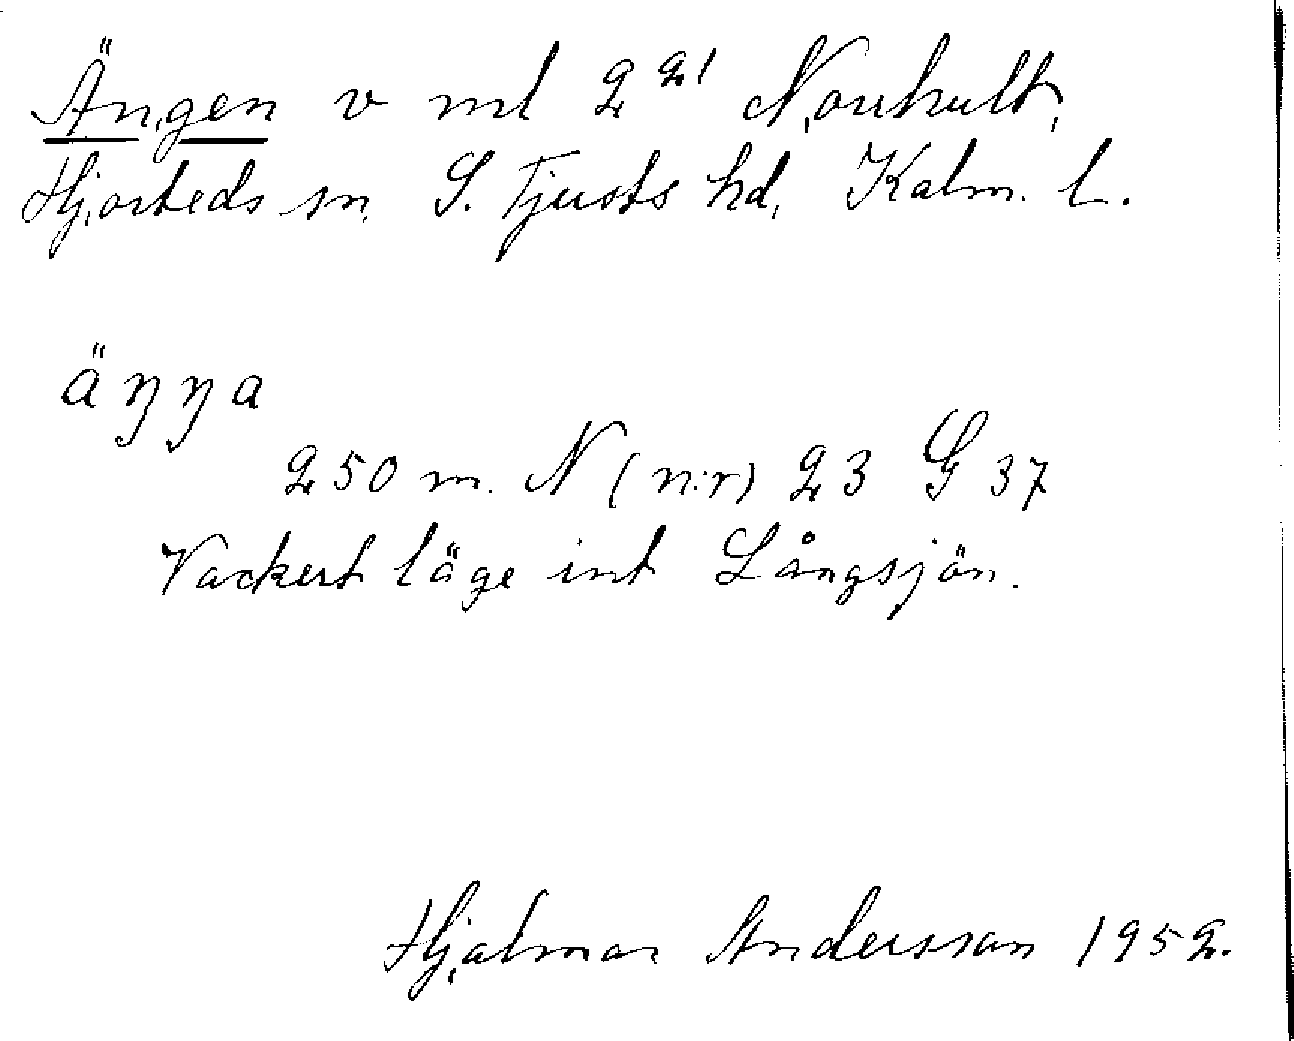 Ängen v ml 2 21 Norrhult,
Hjorteds sn, S. Tjusts hd, Kalm. l.
äŋŋa
250 m. N (n:r) 23 G 37
Vackert läge int Långsjön.
Hjalmar Andersson 1952.